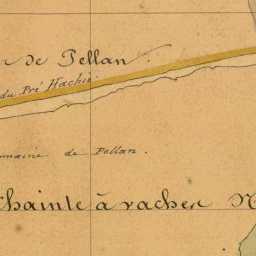 de Pellan.
du Pré Hachié
maine de Pellan.
hainte à vaches N